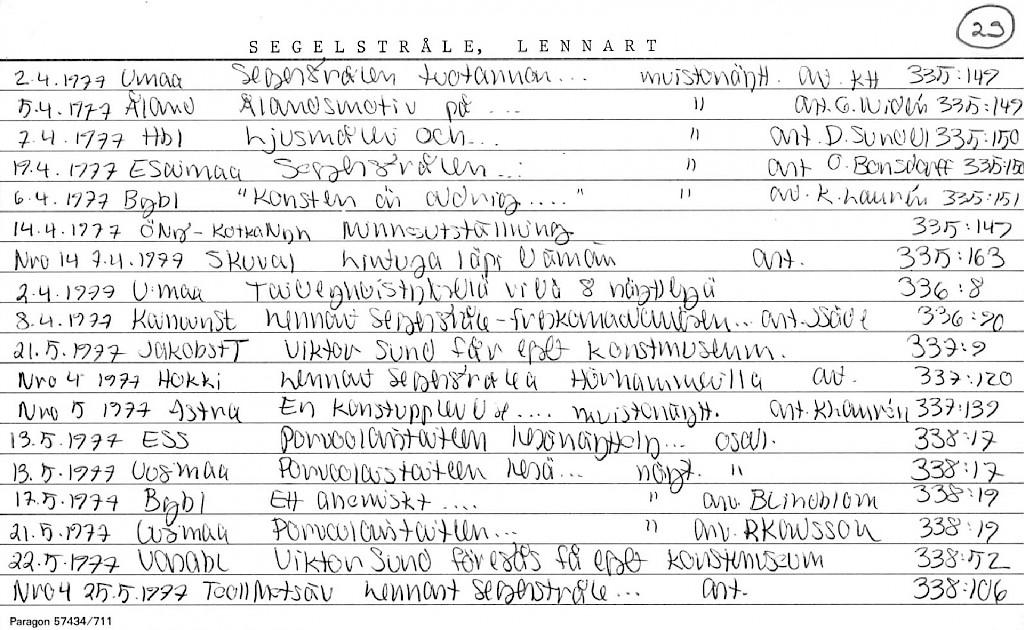 29
SEGELSTRÅLE, LENNART
2.4.1977 Umaa Segerstrålen tuotannon... muistonäytt. arv. KH 335:149
5.4.1977 Åland Ålandsmotiv på ... " art. G. Widén 335:149
7.4.1977 Hbl Ljusmåleri och... " art. D. Sundell 335:150
19.4.1977 ESaimaa Segerstrålen ... " art O. Bonsdorff 335:150
6.4.1977 Bgbl "Konsten är aldrig...." " arv. K. Laurén 335:151
14.4.1977 ÖNy-KotkaNyh Minnesutställning 335:147
Nro 14 7.4.1977 SKuval Lintuja läpi elämän art. 335:163
2.4.1977 U:maa vielä 8 336:8
8.4.1977 Lennart Segerstråle - art. 336:90
21.5.1977 JakobstT Viktor Sund får eget konstmuseum. 337:9
Nro 4 1977 Hokki Lennart Segerstrålea art. 337:120
Nro 5 1977 Astra En konstupplevelse.... muistonäytt. art. K Laurén 337:139
13.5.1977 ESS Porvoolaistaiteen kesänäyttely... osall. 338:17
13.5.1977 Uusmaa Porvoolaistaiteen kesä... näyt. " 338:17
17.5.1977 Bgbl Ett .... " arv. BLindblom 338:19
21.5.1977 Uusmaa Porvoolaistaiteen... " arv. RKarlsson 338:19
22.5.1977 Vasabl Viktor Sund föreslås få eget konstmuseum 338:52
Nro 4 25.5.1977 Lennart Segerstråle... art. 338:106
Paragon 57434/711